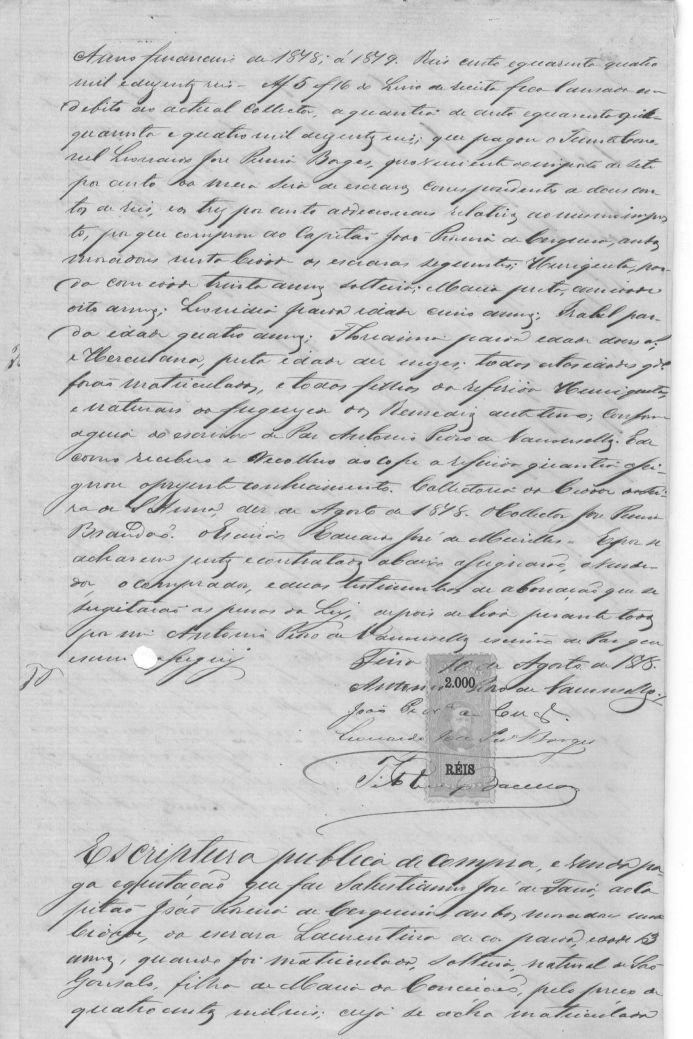 Anno financeiro de 1878, á 1879. Reis cento e quarenta e quatro
mil e duzentos reis - Af 5 of 16 do Livro de receita fica lançado em
debito ao actual Collector, a quantia de cento e quarenta
quarenta e quatro mil duzentos reis, que pagou o Tenente Coro-
nel Leonardo José Pereira Borges, proveniente do imposto de sete
por cento da meia Siza de escravos correspondente a dous con-
tos de reis, e os tres por cento addicionais relativos ao mesmo impos
to, por que comprou ao Capitão João Pereira de Cerqueira, ambos
moradores nesta Cidade os escravos seguintes; par-
da com idade trinta annos solteira; Maria preta, com idade
oito annos; Leonidia parda idade cinco annos; Izabel par-
da idade quatro annos; Floresmina parda idade dous
e Herculana, preta idade dez mezes; todos estas idades q.
forão matriculados, e todos filhos da referida
e naturais da freguezia dos Remedios deste termo; Conforme
a guia do escrivão de Paz Antonio Pedro de Vasconcellos. E de
como recebeu e recolheu ao cofre a referida quantia assi-
gnou o presente conhecimento. Collectoria da Cidade da Fei-
ra de S. Anna, dez de Agosto de 1878. O Collector José Pereira
Brandão. O Escrivão Eduardo José de Meirelles. E por se
acharem justos e contratados abaixo assignarão, o vende-
dor, o comprador, e duas testimunhas de abonação que se
sugeitarão as penas da Ley, depois de lida perante todos
por mim Antonio Pedro de Vasconcellos escrivão de Paz que
escrevi e assignei
Feira 10 de Agosto de 1878.
2.000
Antonio Pedro de Vasconcellos
João Per.ª de Cerq.ª
Leonardo José Per.ª Borges
RÉIS
Escriptura publica de compra, e venda pa-
ga e quitação que faz Salustiano José de Faria, ao Ca-
pitão João Pereira de Cerqueira, ambos moradores nesta
Cidade, da escrava Laurentina de cor parda, idade 13
annos, quando foi matriculada, solteira, natural de São
Gonsalo, filha de Maria da Conceição, pelo preço de
quatrocentos mil reis; cuja se acha matriculada